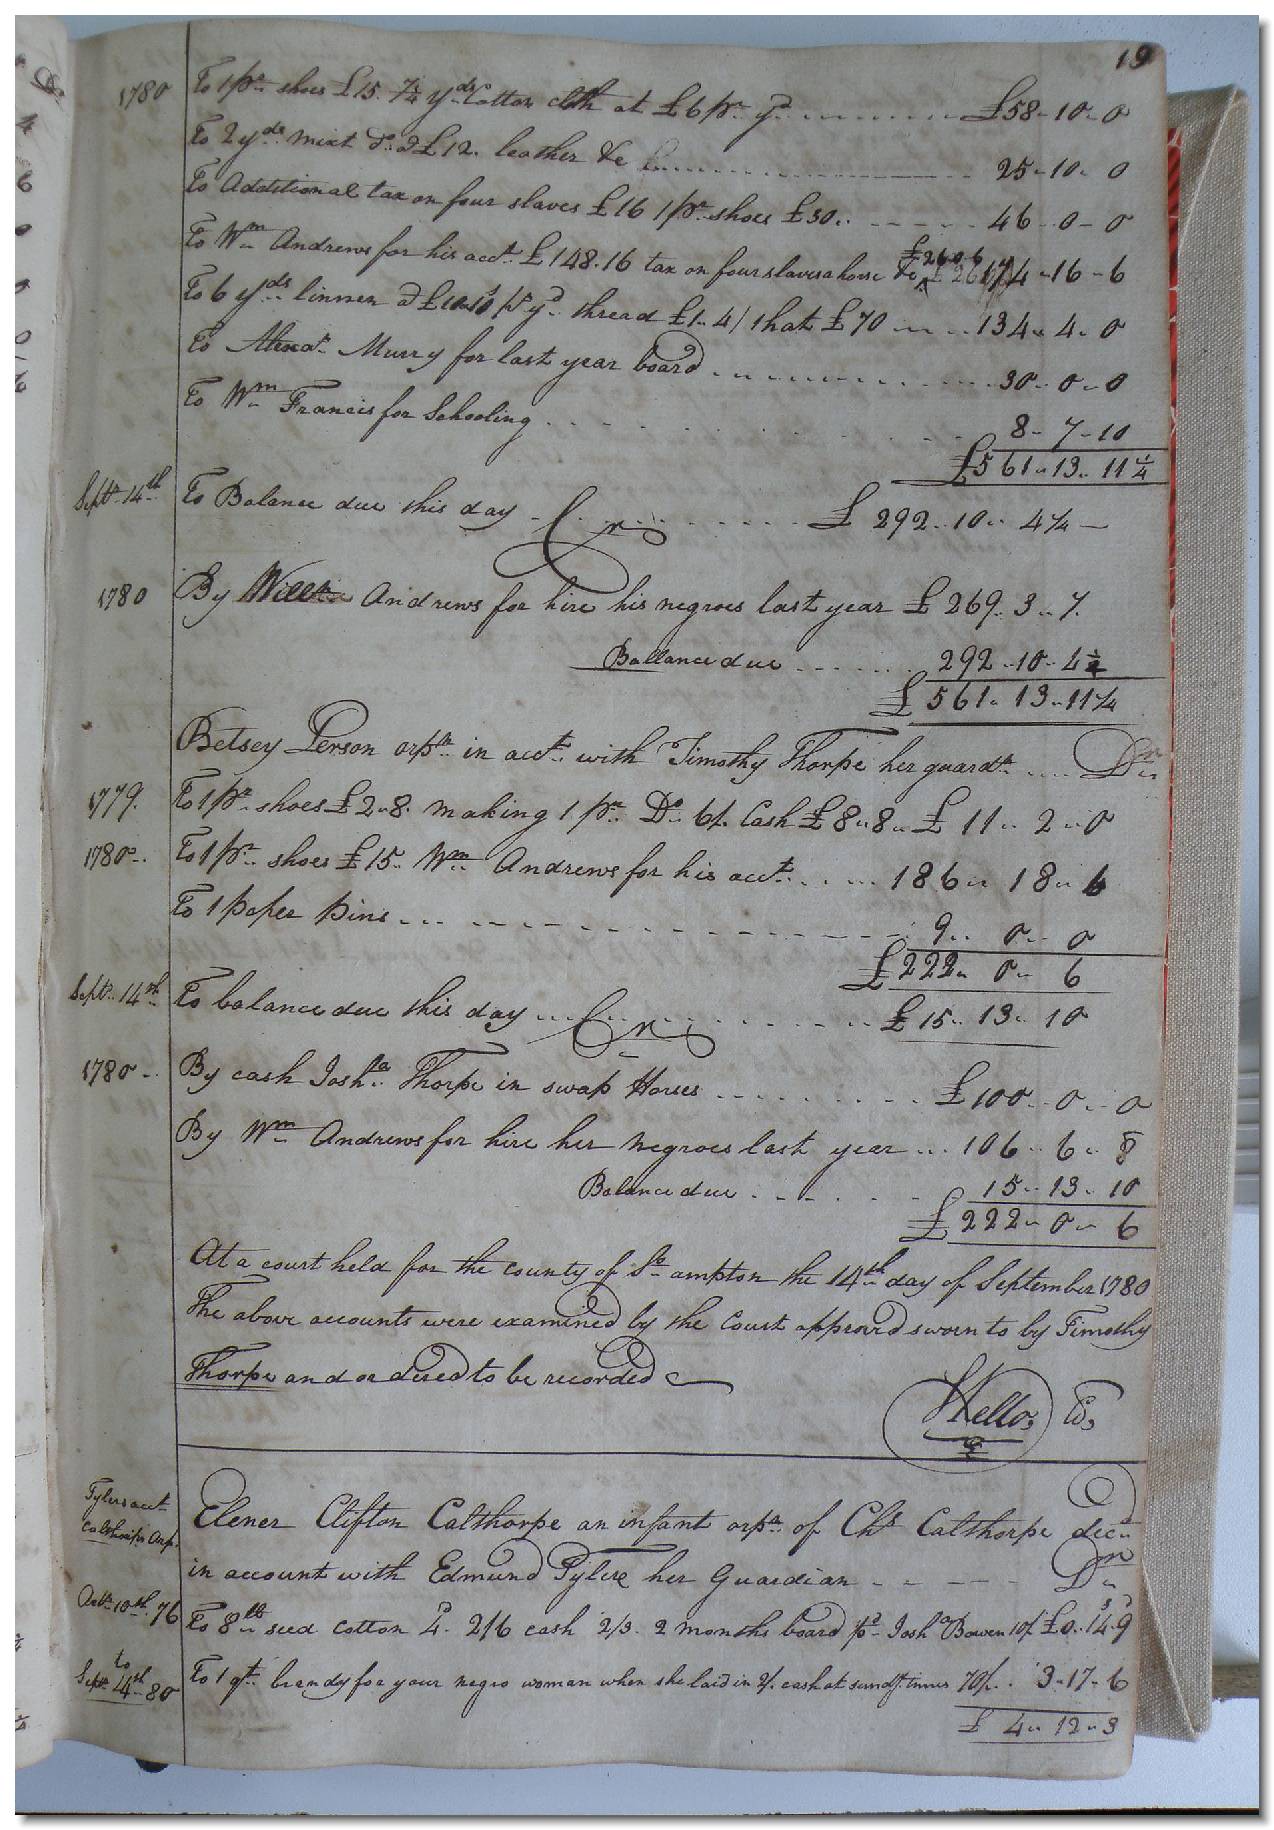 19
1780 To 1 pr shoes £15. 7¼ yds Cotton cloth at £6 pr yd £58-10-0
To 2 yds mixt Do @ £12. leather &c 25-10-0
To Additional tax on four slaves £16 1 pr shoes £30.. 46-0-0
To Wm Andrews for his acct £148.16 tax on four slaves a horse &c £26.0.6 174-16-6
To 6 yds linnen @ £10-10 pr yd thread £1-4/ 1 hat £70 134-4-0
To Alexar Murry for last year board 30-0-0
To Wm Francis for Schooling 8-7-10
£561-13-11¼
Septr 14th To Balance due this day £292-10-4¼
Cr
1780 By Willm Andrews for hire his negroes last year £269-3-7.
Ballance due 292-10-4¼
£561-13-11¼
Betsey Person orpn in acct with Timothy Thorpe her guardn Dr
1779. To 1 pr shoes £2-8. making 1 pr Do 6/. Cash £8-8- £11-2-0
1780 To 1 pr shoes £15- Wm Andrews for his acct 186-18-6
To 1 paper pins 9-0-0
£222-0-6
Septr 14th To balance due this day £15-13-10
Cr
1780 By cash Josha Thorpe in swap Horses £100-0-0
By Wm Andrews for hire her negroes last year 106-6-8
Balance due 15-13-10
£222-0-6
At a court held for the county of So ampton the 14th day of September 1780
The above accounts were examined by the Court approv'd sworn to by Timothy
Thorpe and ordered to be recorded
Kello, Co,
Tylers acct
Calthorps Orp.
Elener Clifton Calthorpe an infant orpn of Chs Calthorpe decd
in account with Edmund Tylere her Guardian Dr
Octr 10th 76 To 8 lb seed cotton 4d. 2/6 cash 2/3. 2 months board pd Josha Bowen 10/. £0-14s-9d
to
Septr 4th 80 To 1 qt brandy for your negro woman when she laid in 2/. cash at sundry times 70/. 3-17-6
£4-12-3